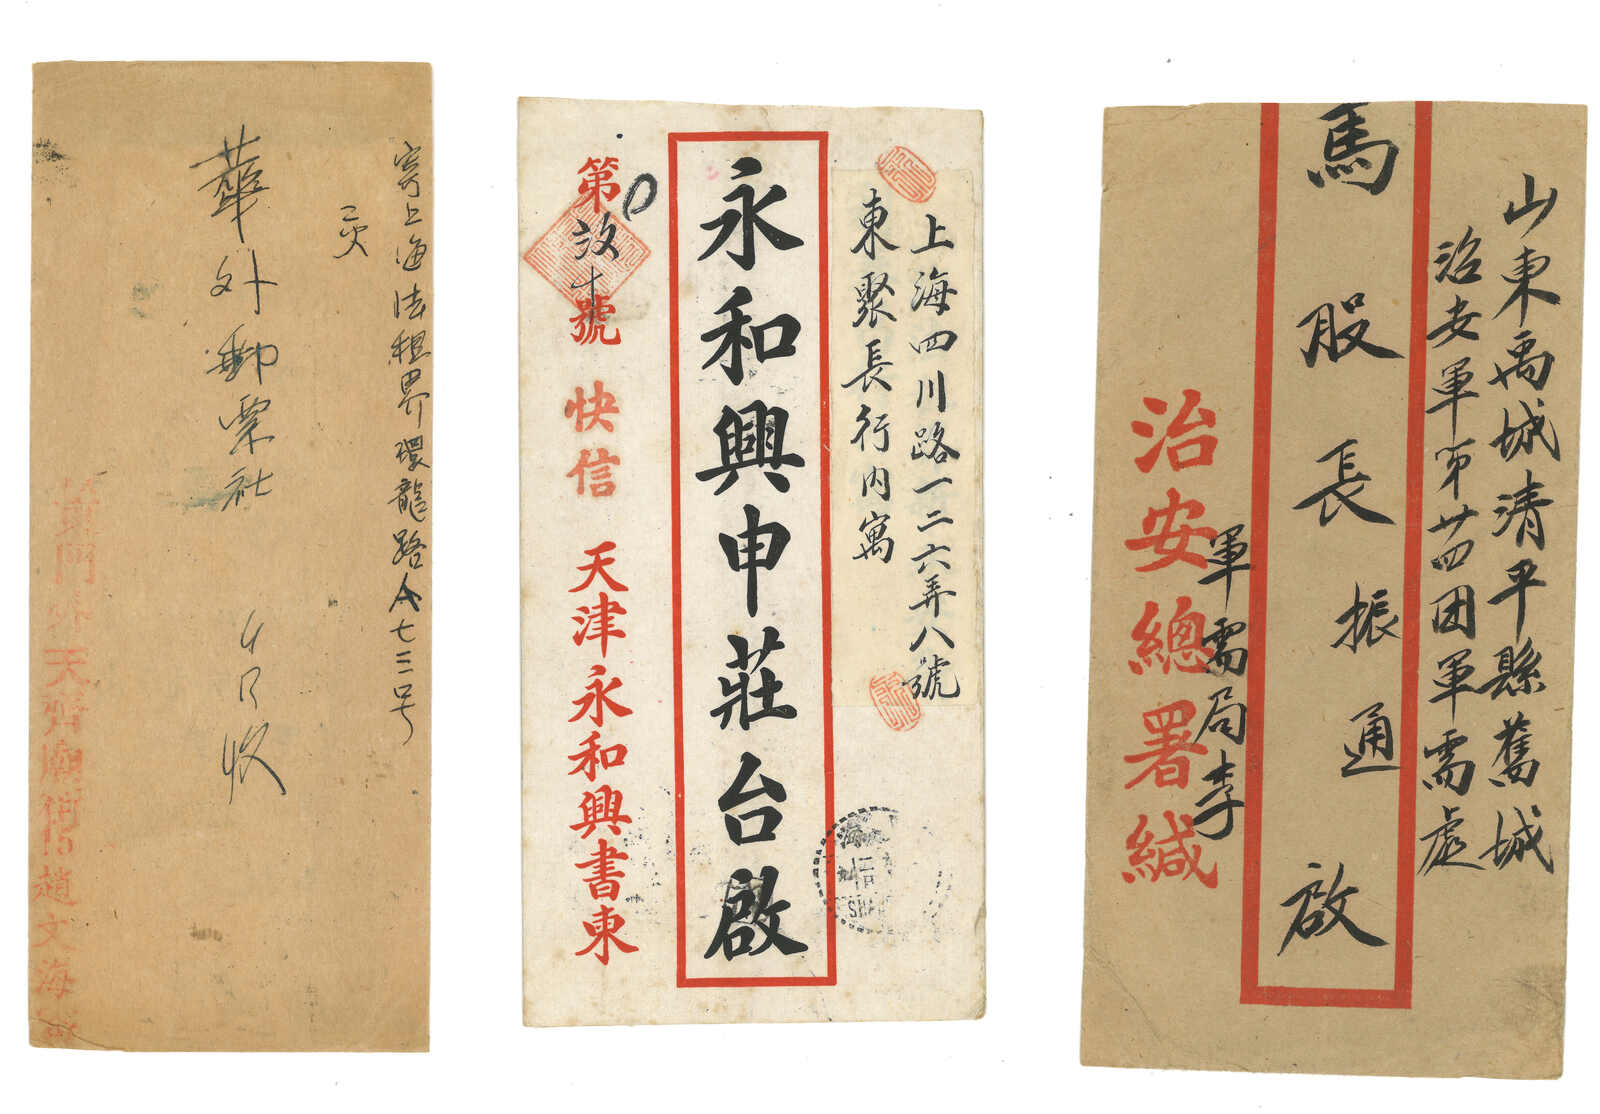 寄上海法租界環龍路人七三号
華外郵票社
收
天齊廟街
趙文海
上海四川路一二六弄八號
東聚長行內寓
永和興申莊台啟
第
號
快信
天津永和興書柬
山東禹城清平縣舊城
治安軍第廿四团軍需處
馬股長振通啟
軍需局李
治安總署緘